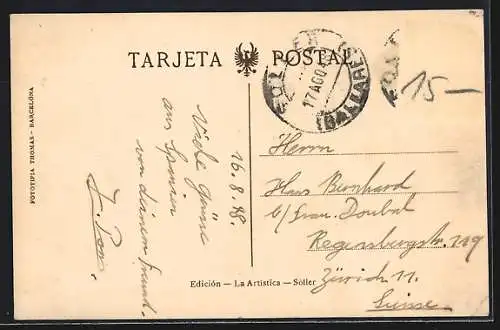 TARJETA POSTAL
SÓLLER
17 AGO
(BALEARES)
15—
16.8.
Viele Grüsse
aus Spanien
von deinem Freund
Herrn
Hans Bernhard
b/ Frau.
Regensbergstr. 119
Zürich 11.
Suisse
Edición — La Artística — Sóller
FOTOTIPIA THOMAS - BARCELONA